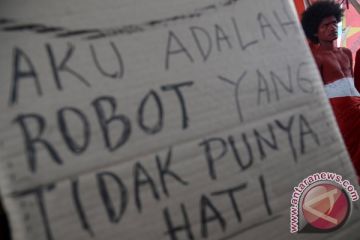 AKU ADALAH
ROBOT YANG
TIDAK PUNYA
HATI
antaranews.com